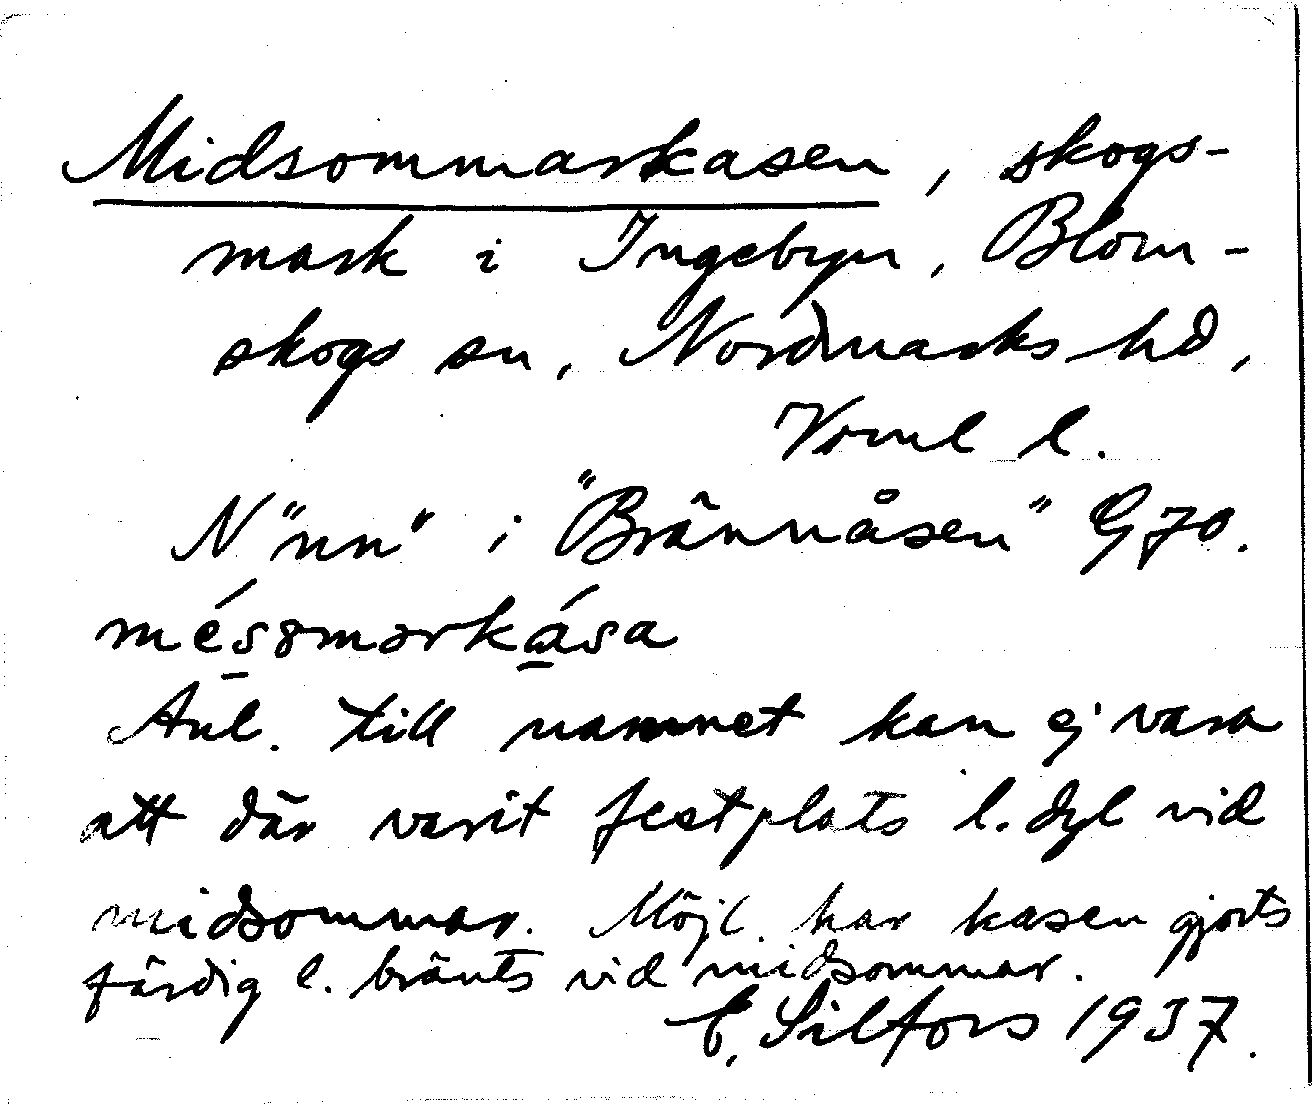 Midsommarkasen, skogs-
mark i Ingebyn, Blom-
skogs sn, Nordmarks hd,
Värml l.
N "nn" i "Brännåsen" G70.
méssmarkása
Anl. till namnet kan ej vara
att där varit festplats l. dyl vid
midsommar. Möjl. har kasen gjorts
färdig l. bränts vid midsommar.
E. Silfors 1937.